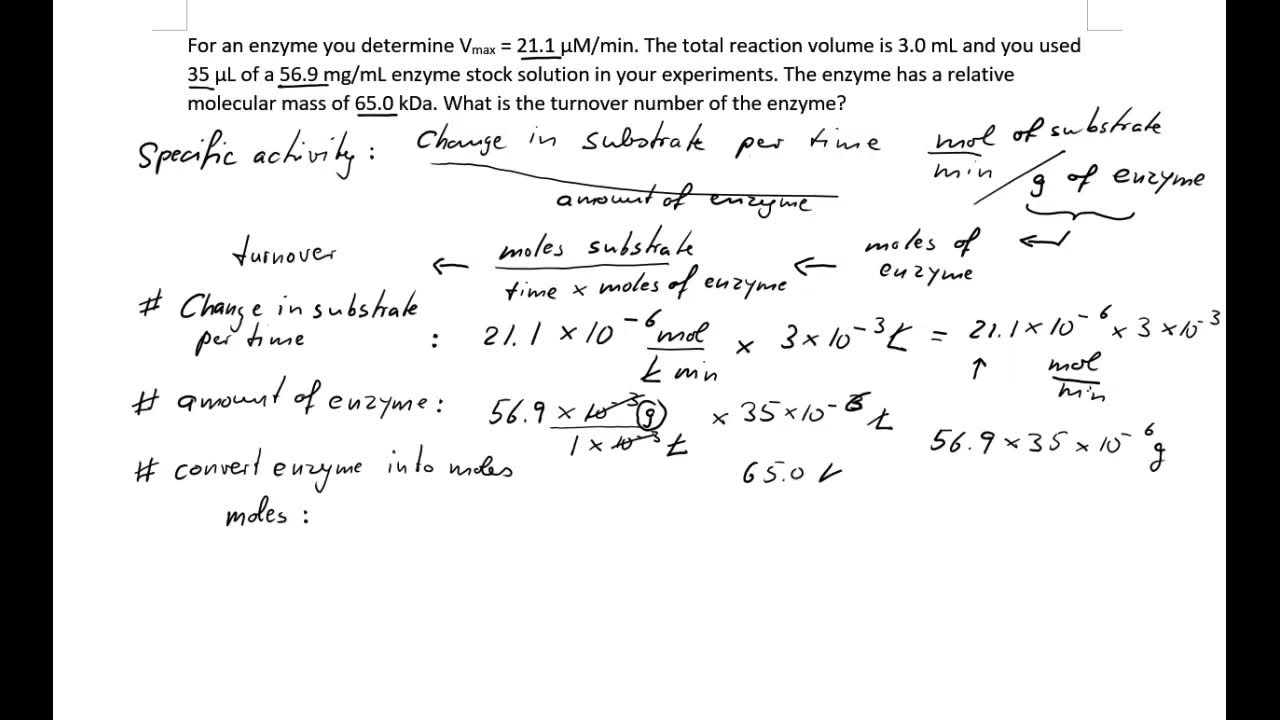 For an enzyme you determine Vmax = 21.1 µM/min. The total reaction volume is 3.0 mL and you used
35 µL of a 56.9 mg/mL enzyme stock solution in your experiments. The enzyme has a relative
molecular mass of 65.0 kDa. What is the turnover number of the enzyme?
Specific activity : Change in substrate per time / amount of enzyme mol/min of substrate / g of enzyme
turnover ← moles substrate / time × moles of enzyme ← moles of enzyme ←
# Change in substrate per time : 21.1 × 10⁻⁶ mol / L min × 3 × 10⁻³ L = 21.1 × 10⁻⁶ × 3 × 10⁻³
↑ mol / min
# amount of enzyme : 56.9 × 10⁻³ g / 1 × 10⁻³ L × 35 × 10⁻⁶ L 56.9 × 35 × 10⁻⁶ g
# convert enzyme into moles 65.0 k
moles :